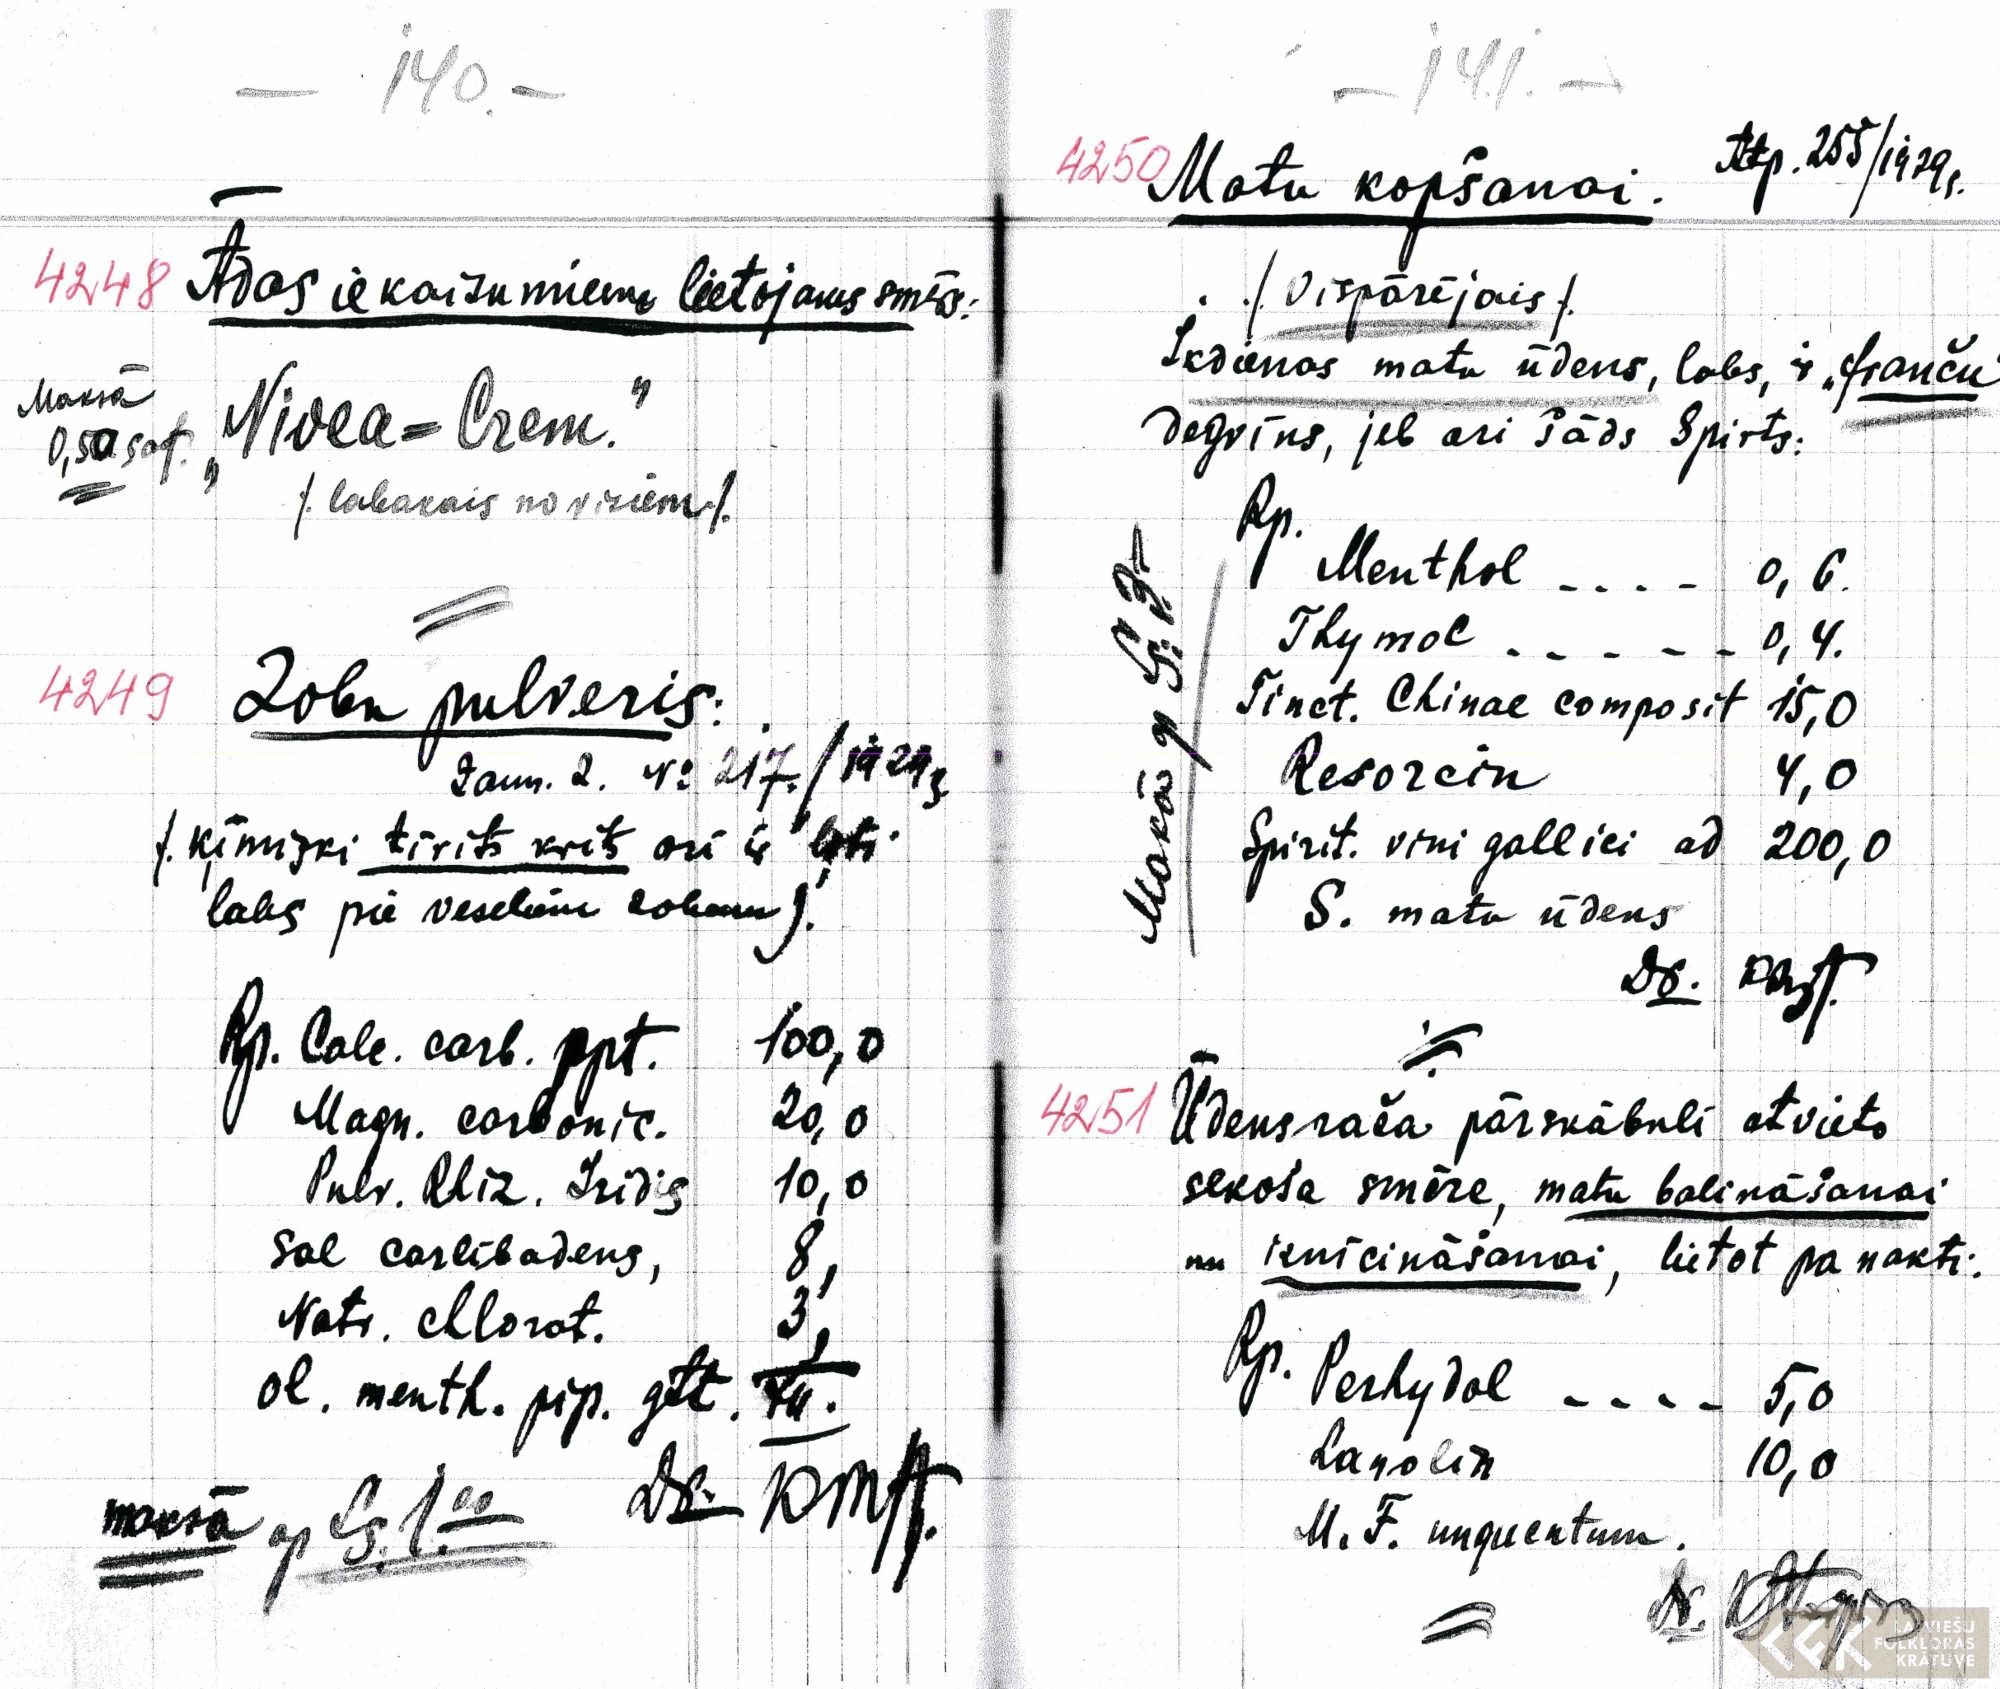 — 140. —
4248 Ādas iekaisumiem lietojams smērs:
Maksā
0,50 sat.
„Nivea = Crem."
/. labakais no visiem /.
4249 Zobu pulveris:
Jaun. Z. № 217./1929g.
/. ķīmiski tīrīts krīts arī ir ļoti
labs pie veseliem zobiem /.
Rp. Calc. carb. ppt. 100,0
Magn. carbonic. 20,0
Pulv. Rhiz. Iridis 10,0
Sal carlibadens, 8,
Natr. chlorat. 3,
ol. menth. pip. gtt.
maksā ap Ls. 1.00
Dr.
— 141. —
4250 Matu kopšanai. Atp. 255/1929g.
/. Vispārējais /.
Ikdienas matu ūdens, labs, ir „franču"
degvīns, jeb arī šāds Spirts:
Rp.
Menthol - - - - 0,6.
Thymol - - - - - 0,4.
Tinct. Chinae composit 15,0
Resorcin 4,0
Spirit. vini gallici ad 200,0
S. matu ūdens
Dr.
Maksā ap
4251 Ūdensraža pārskābuli atvieto
sekoša smēre, matu balināšanai
un iznīcināšanai, lietot pa nakti:
Rp. Perhydol - - - - 5,0
Lanolin 10,0
M. F. unguentum.
Dr.
LATVIEŠU
FOLKLORAS
KRĀTUVE